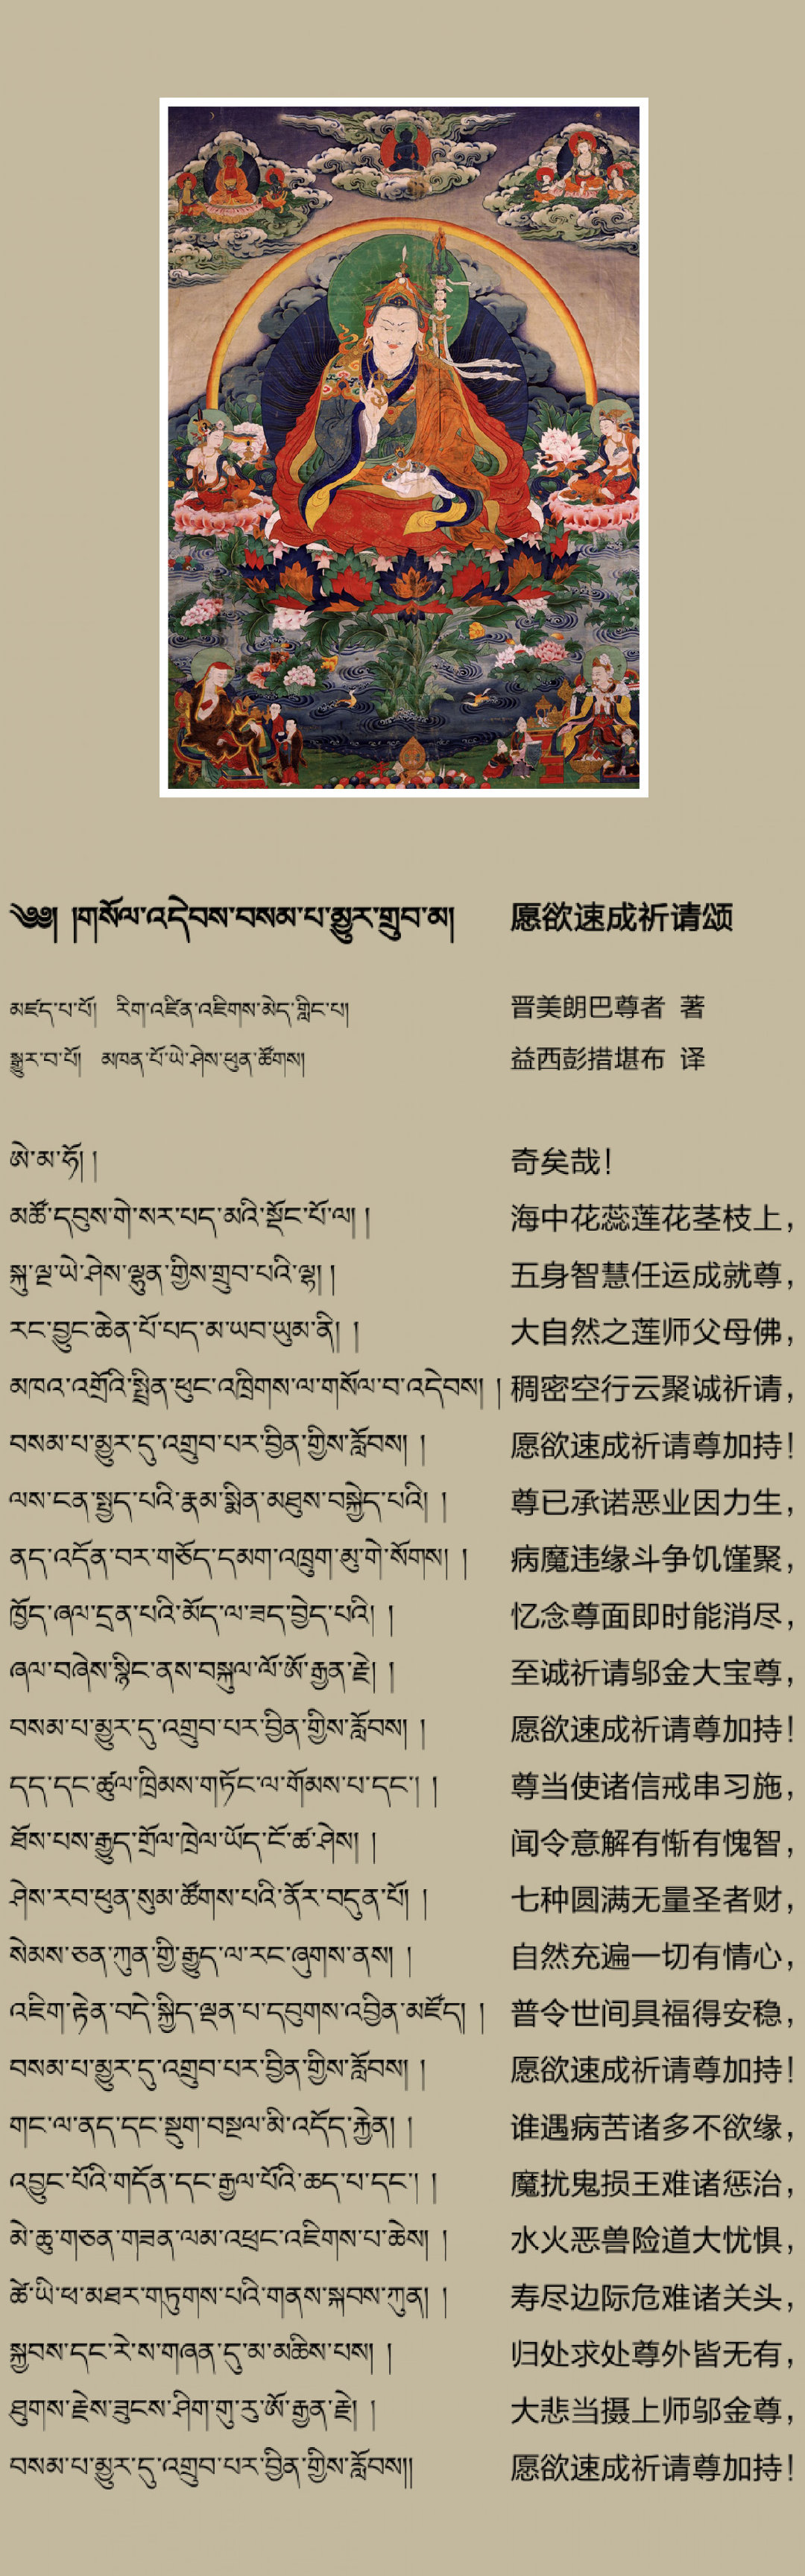 ༄༅། །གསོལ་འདེབས་བསམ་པ་མྱུར་གྲུབ་མ།
愿欲速成祈请颂
མཛད་པ་པོ། རིག་འཛིན་འཇིགས་མེད་གླིང་པ།
晋美朗巴尊者 著
སྒྱུར་བ་པོ། མཁན་པོ་ཡེ་ཤེས་ཕུན་ཚོགས།
益西彭措堪布 译
ཨེ་མ་ཧོ། །
奇矣哉！
མཚོ་དབུས་གེ་སར་པད་མའི་སྡོང་པོ་ལ། །
海中花蕊莲花茎枝上，
སྐུ་ལྔ་ཡེ་ཤེས་ལྷུན་གྱིས་གྲུབ་པའི་ལྷ། །
五身智慧任运成就尊，
རང་བྱུང་ཆེན་པོ་པད་མ་ཡབ་ཡུམ་ནི། །
大自然之莲师父母佛，
མཁའ་འགྲོའི་སྤྲིན་ཕུང་འཁྲིགས་ལ་གསོལ་བ་འདེབས། །
稠密空行云聚诚祈请，
བསམ་པ་མྱུར་དུ་འགྲུབ་པར་བྱིན་གྱིས་རློབས། །
愿欲速成祈请尊加持！
ལས་ངན་སྤྱད་པའི་རྣམ་སྨིན་མཐུས་བསྐྱེད་པའི། །
尊已承诺恶业因力生，
ནད་འདོན་བར་གཅོད་དམག་འཁྲུག་མུ་གེ་སོགས། །
病魔违缘斗争饥馑聚，
ཁྱོད་ཞལ་དྲན་པའི་མོད་ལ་ཟད་བྱེད་པའི། །
忆念尊面即时能消尽，
ཞལ་བཞེས་སྙིང་ནས་བསྐུལ་ལོ་ཨོ་རྒྱན་རྗེ། །
至诚祈请邬金大宝尊，
བསམ་པ་མྱུར་དུ་འགྲུབ་པར་བྱིན་གྱིས་རློབས། །
愿欲速成祈请尊加持！
དད་དང་ཚུལ་ཁྲིམས་གཏོང་ལ་གོམས་པ་དང་། །
尊当使诸信戒串习施，
ཐོས་པས་རྒྱུད་གྲོལ་ཁྲེལ་ཡོད་ངོ་ཚ་ཤེས། །
闻令意解有惭有愧智，
ཤེས་རབ་ཕུན་སུམ་ཚོགས་པའི་ནོར་བདུན་པོ། །
七种圆满无量圣者财，
སེམས་ཅན་ཀུན་གྱི་རྒྱུད་ལ་རང་ཞུགས་ནས། །
自然充遍一切有情心，
འཇིག་རྟེན་བདེ་སྐྱིད་ལྡན་པ་དབུགས་འབྱིན་མཛོད། །
普令世间具福得安稳，
བསམ་པ་མྱུར་དུ་འགྲུབ་པར་བྱིན་གྱིས་རློབས། །
愿欲速成祈请尊加持！
གང་ལ་ནད་དང་སྡུག་བསྔལ་མི་འདོད་རྐྱེན། །
谁遇病苦诸多不欲缘，
འབྱུང་པོའི་གདོན་དང་རྒྱལ་པོའི་ཆད་པ་དང་། །
魔扰鬼损王难诸惩治，
མེ་ཆུ་གཅན་གཟན་ལམ་འཕྲང་འཇིགས་པ་ཆེས། །
水火恶兽险道大忧惧，
ཚེ་ཡི་ཕ་མཐར་གཏུགས་པའི་གནས་སྐབས་ཀུན། །
寿尽边际危难诸关头，
སྐྱབས་དང་རེ་ས་གཞན་དུ་མ་མཆིས་པས། །
归处求处尊外皆无有，
ཐུགས་རྗེས་ཟུངས་ཤིག་གུ་རུ་ཨོ་རྒྱན་རྗེ། །
大悲当摄上师邬金尊，
བསམ་པ་མྱུར་དུ་འགྲུབ་པར་བྱིན་གྱིས་རློབས།།
愿欲速成祈请尊加持！